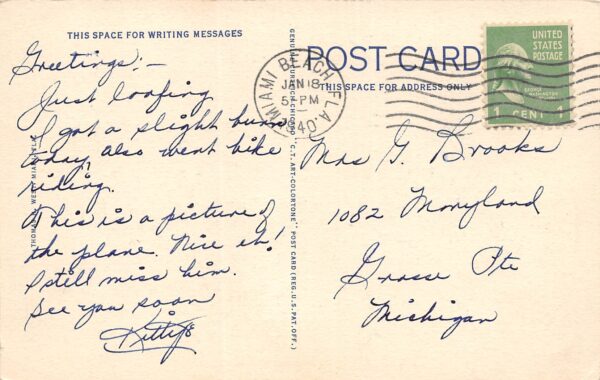 THIS SPACE FOR WRITING MESSAGES
Greetings! —
Just loafing
I got a slight burn
today also went bike
riding.
This is a picture of
the plane. Nice eh!
I still miss him.
See you soon
THOMAS
WEST MIAMI FLA
GENUINE CURTEICH-CHICAGO "C.T. ART-COLORTONE" POST CARD (REG. U.S. PAT. OFF.)
POST CARD
THIS SPACE FOR ADDRESS ONLY
MIAMI BEACH, FLA.
JAN 18
5 PM
1940
UNITED
STATES
POSTAGE
GEORGE WASHINGTON
1 CENT 1
Mrs G. Brooks
1082 Maryland
Grosse Pte
Michigan